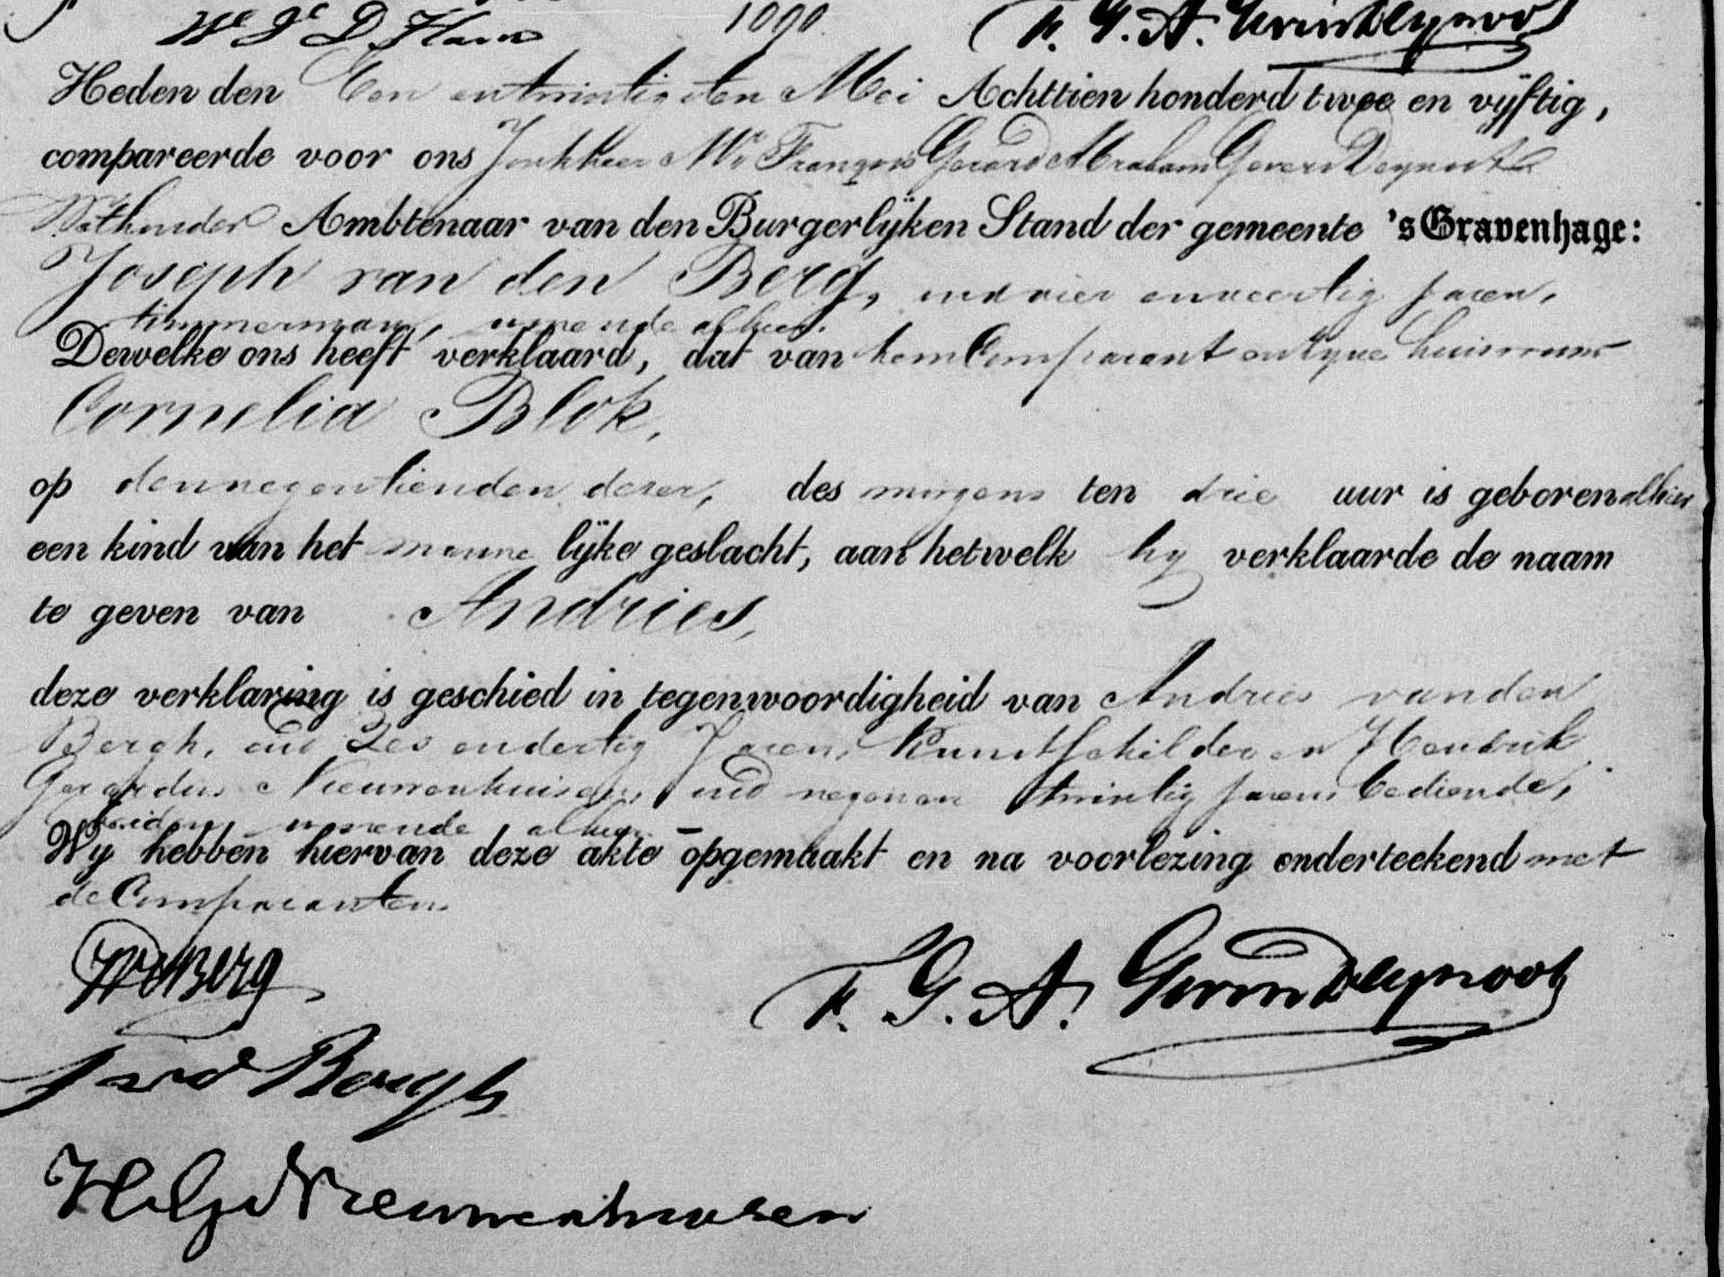 F. G. A. Gevers Deynoot
Heden den Een en twintigsten Mei Achttien honderd twee en vyftig,
compareerde voor ons Jonkheer Mr François Gerard Abraham Gevers Deynoot
Wethouder Ambtenaar van den Burgerlyken Stand der gemeente 's Gravenhage:
Joseph van den Berg, oud vier en veertig jaren,
timmerman, wonende alhier.
Dewelke ons heeft verklaard, dat van hem Comparant en zyne huisvrouw
Cornelia Blok,
op den negentienden dezer, des morgens ten drie uur is geboren alhier
een kind van het manne lyke geslacht, aan hetwelk hy verklaarde de naam
te geven van Andries,
deze verklaring is geschied in tegenwoordigheid van Andries van den
Bergh, oud Zes en dertig Jaren, Kunstschilder en Hendrik
Gerardus Nieuwenhuisen, oud negen en twintig jaren bediende,
beiden wonende alhier. –
Wy hebben hiervan deze akte opgemaakt en na voorlezing onderteekend met
de Comparanten.
JVDBerg
F. G. A. Gevers Deynoot
A v d Bergh
H. G. Nieuwenhuisen